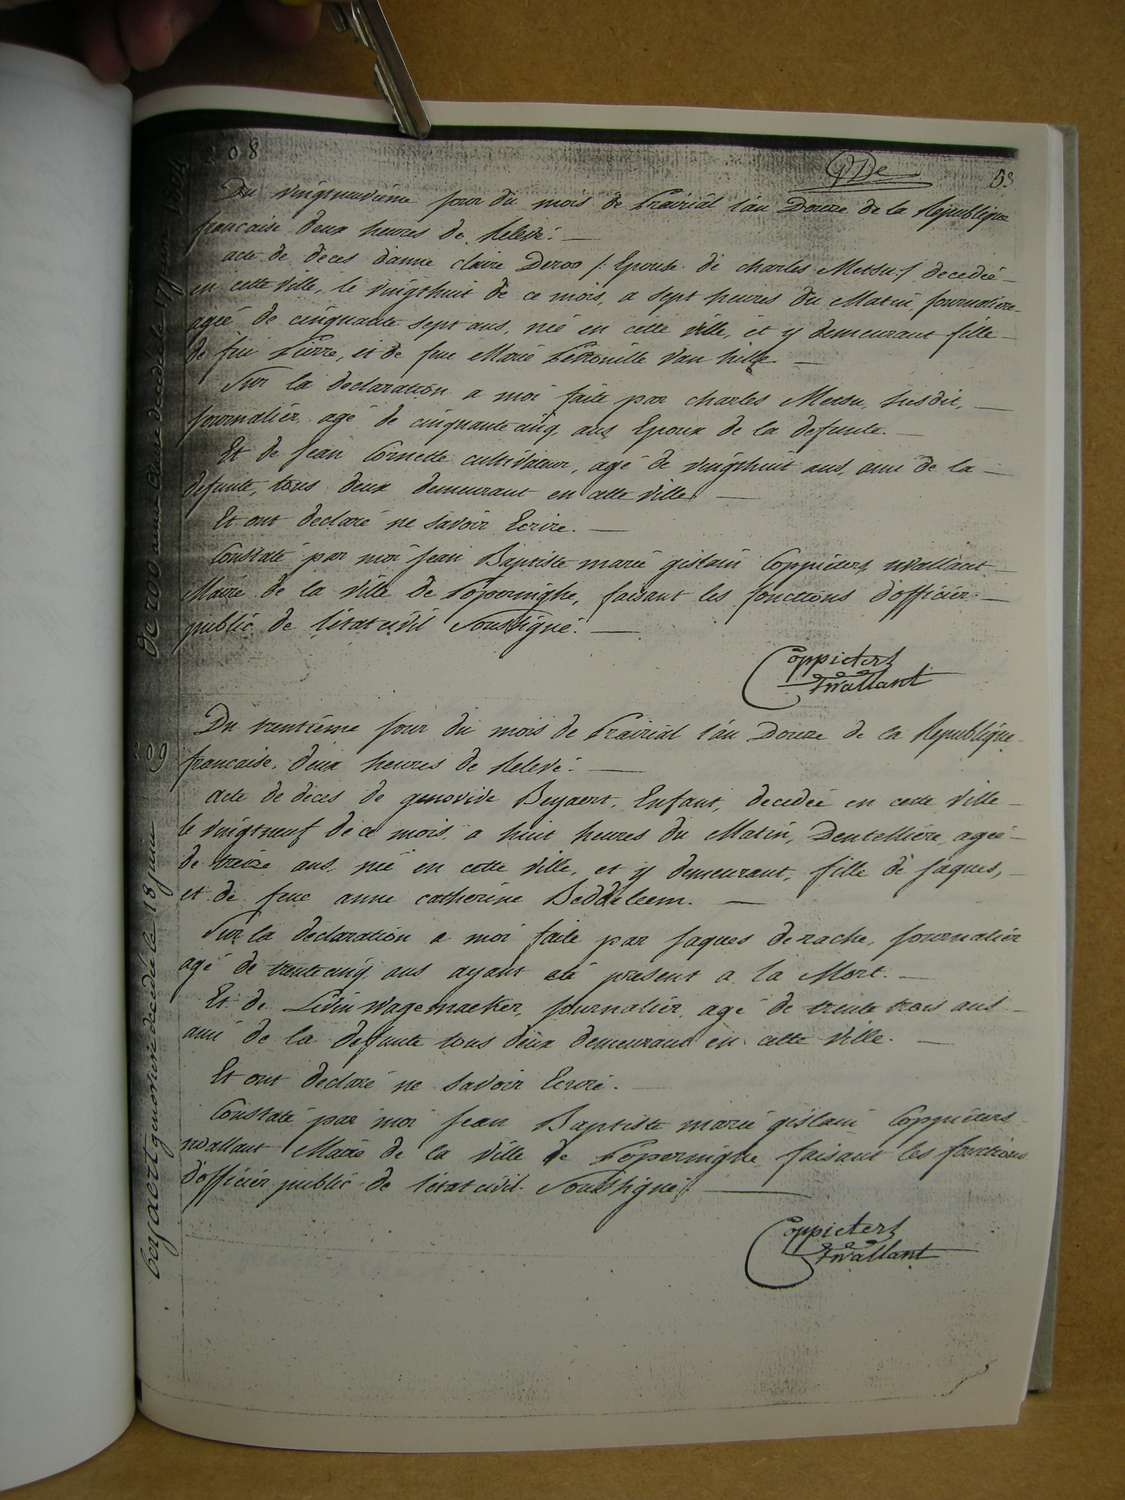 208
53
Du vingtneuvième jour du mois de Prairial l'an Douze de la République
francaise deux heures de Relevé.
acte de déces d'anne claire Deroo /: Epouse de charles Messu :/ decedée
en cette ville, le vingthuit de ce mois, a sept heures du Matin journaliere
agée de cinquante sept ans, née en cette ville, et y demeurant fille
de feu Pierre, et de feue Marie Petronille Van hille.
Sur la declaration a moi faite par charles Messu, susdit,
journalier, agé de cinquantecinq ans Epoux de la defunte.
Et de Jean Cornette cultivateur, agé de vingthuit ans, ami de la
defunte, tous deux demeurant en cette ville.
Et ont declaré ne savoir Ecrire.
Constaté par moi Jean Baptiste marie gislain Coppieters wallant
Maire de la ville de Poperinghe, faisant les fonctions d'officier
public de l'état civil Soussigné.
Coppieters
wallant
Deroo anne Claire decedé le 17 juin 1804
Du trentième jour du mois de Prairial l'an Douze de la République
francaise, deux heures de Relevé.
acte de déces de genovive Beyaert, Enfant, decedée en cette ville
le vingtneuf de ce mois, a huit heures du Matin, Dentellière, agée
de treize ans, née en cette ville, et y demeurant, fille de Jaques,
et de feue anne catherine Beddeleem.
Sur la déclaration a moi faite par Jaques derache, journalier
agé de trentecinq ans ayant eté present a la Mort.
Et de Livin wagemaeker, journalier, agé de trente trois ans
ami de la defunte tous deux demeurant en cette ville.
Et ont declaré ne savoir Ecrire.
Constaté par moi Jean Baptiste marie gislain Coppieters
wallant Maire de la ville de Poperinghe faisant les fonctions
d'officier public de l'état civil. Soussigné.
Coppieters
wallant
beyaert genovive decedé le 18 juin
29